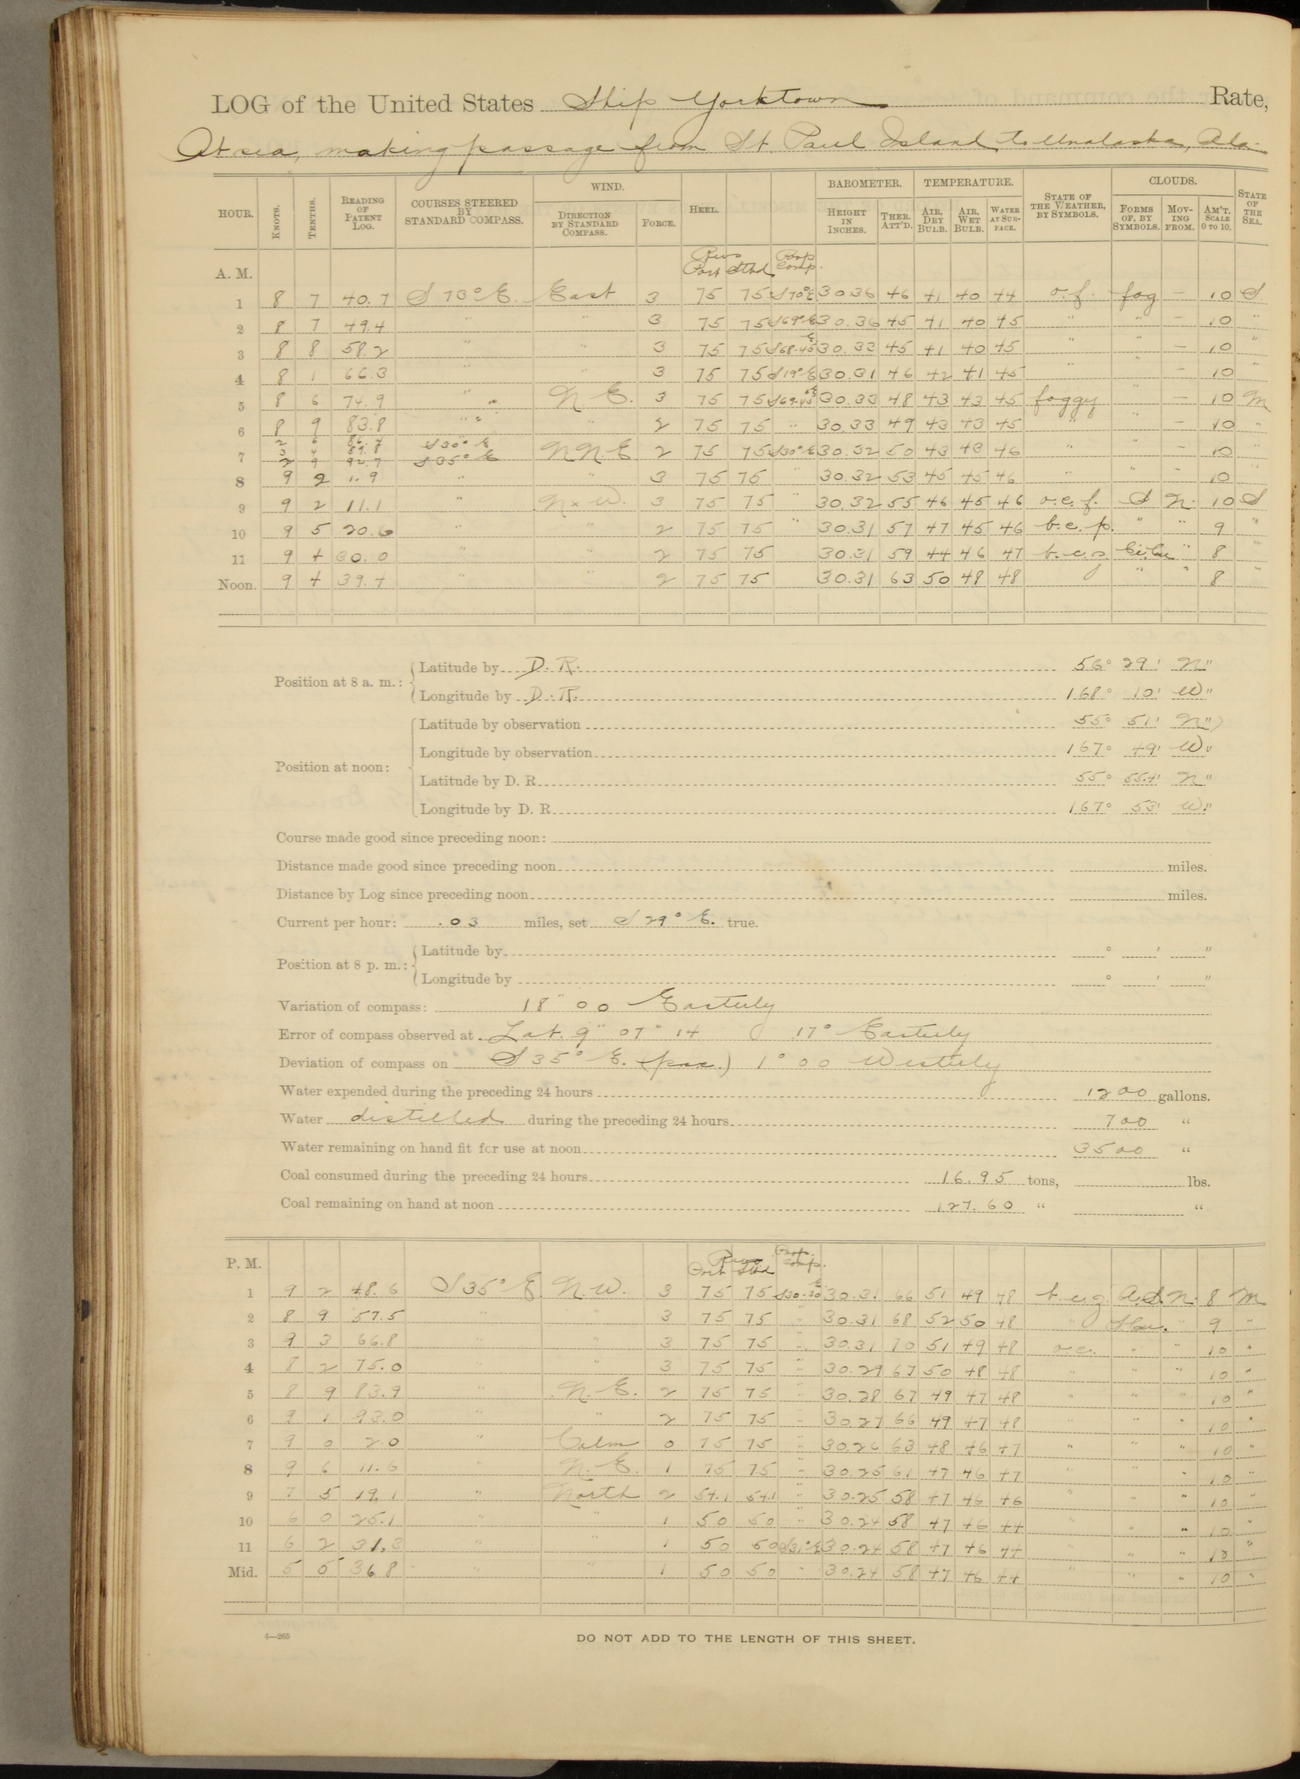 LOG of the United States Ship Yorktown Rate,
At sea, making passage from St. Paul Island to Unalaska, Ala.
HOUR. KNOTS. TENTHS. READING OF PATENT LOG. COURSES STEERED BY STANDARD COMPASS. WIND. DIRECTION BY STANDARD COMPASS. FORCE. HEEL. BAROMETER. HEIGHT IN INCHES. THER. ATT'D. TEMPERATURE. AIR, DRY BULB. AIR, WET BULB. WATER AT SURFACE. STATE OF THE WEATHER, BY SYMBOLS. CLOUDS. FORMS OF, BY SYMBOLS. MOVING FROM. AM'T. SCALE 0 TO 10. STATE OF THE SEA.
A. M. Revs Port Stbd
1 8 7 40.7 S 70° E. East 3 75 75 S 70° E 30.36 46 41 40 44 o.f. fog — 10 S
2 8 7 49.4 " " 3 75 75 S 69° E 30.36 45 41 40 45 " " — 10 "
3 8 8 58.2 " " 3 75 75 30.33 45 41 40 45 " " — 10 "
4 8 1 66.3 " " 3 75 75 30.31 46 42 41 45 " " — 10 "
5 8 6 74.9 " N. E. 3 75 75 30.33 48 43 43 45 foggy " — 10 M
6 8 9 83.8 " " 2 75 75 " 30.33 49 43 43 45 " " — 10 "
7 2 9 92.7 S 30° E S 35° E NNE 2 75 75 S 30° E 30.32 50 43 43 46 " " " 10
8 9 2 1.9 " " 3 75 75 " 30.32 53 45 45 46 " " " 10 "
9 9 2 11.1 " N x W. 3 75 75 " 30.32 55 46 45 46 o.c.f. S N. 10 S
10 9 5 20.6 " " 2 75 75 " 30.31 57 47 45 46 b.c.p. " " 9 "
11 9 4 30.0 " " 2 75 75 30.31 59 44 46 47 Ci.Cu " 8 "
Noon. 9 4 39.4 " " 2 75 75 30.31 63 50 48 48 " " 8 "
Position at 8 a. m.: Latitude by D. R. 56° 29' N"
Longitude by D. R. 168° 10' W"
Position at noon: Latitude by observation 55° 51' N"
Longitude by observation 167° 49' W"
Latitude by D. R. 55° 55.4' N"
Longitude by D. R. 167° 53' W"
Course made good since preceding noon:
Distance made good since preceding noon miles.
Distance by Log since preceding noon miles.
Current per hour: .03 miles, set S 29° E. true.
Position at 8 p. m.: Latitude by ° ' "
Longitude by ° ' "
Variation of compass: 18° 00 Easterly
Error of compass observed at Lat. 9 07 14 17° Easterly
Deviation of compass on S 35° E. (psc.) 1° 00 Westerly
Water expended during the preceding 24 hours 1200 gallons.
Water distilled during the preceding 24 hours 700 "
Water remaining on hand fit for use at noon 3500 "
Coal consumed during the preceding 24 hours 16.95 tons, lbs.
Coal remaining on hand at noon 127.60 " "
P. M. Revs Port Stbd
1 9 2 48.6 S 35° E N. W. 3 75 75 30.31 66 51 49 48 N. 8 M
2 8 9 57.5 " " 3 75 75 " 30.31 68 52 50 48 " " 9 "
3 9 3 66.8 " " 3 75 75 " 30.31 70 51 49 48 o.c. " " 10 "
4 8 2 75.0 " " 3 75 75 " 30.29 67 50 48 48 " " 10 "
5 8 9 83.9 " N. E. 2 75 75 " 30.28 67 49 47 48 " " " 10 "
6 9 1 93.0 " " 2 75 75 " 30.27 66 49 47 48 " " " 10 "
7 9 0 2.0 " Calm 0 75 75 " 30.26 63 48 46 47 " " " 10 "
8 9 6 11.6 " N. E. 1 75 75 " 30.25 61 47 46 47 " " " 10 "
9 7 5 19.1 " North 2 54.1 54.1 " 30.25 58 47 46 46 " " " 10 "
10 6 0 25.1 " " 1 50 50 " 30.24 58 47 46 44 " " " 10 "
11 6 2 31.3 " " 1 50 50 S 31° E 30.24 58 47 46 44 " " " 10 "
Mid. 5 5 36.8 " " 1 50 50 " 30.24 58 47 46 44 " " " 10 "
4—265
DO NOT ADD TO THE LENGTH OF THIS SHEET.